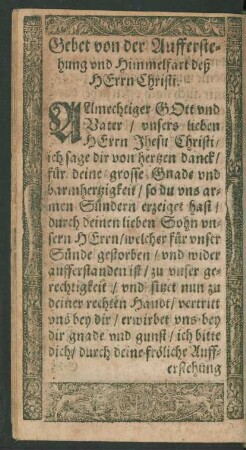 Gebet von der Aufferste-
hung vnd Himmelfart deß
HErrn Christi.
ALmechtiger GOtt vnd
Vater / vnsers lieben
HErrn Jhesu Christi /
ich sage dir von hertzen danck /
für deine grosse Gnade vnd
barmhertzigkeit / so du vns ar-
men Sündern erzeiget hast /
durch deinen lieben Sohn vn-
sern HErrn / welcher für vnser
Sünde gestorben / vnd wider
aufferstanden ist / zu vnser ge-
rechtigkeit / vnd sitzet nun zu
deiner rechten Handt / vertritt
vns bey dir / erwirbet vns bey
dir gnade vnd gunst / ich bitte
dich / durch deine fröliche Auff-
erstehung